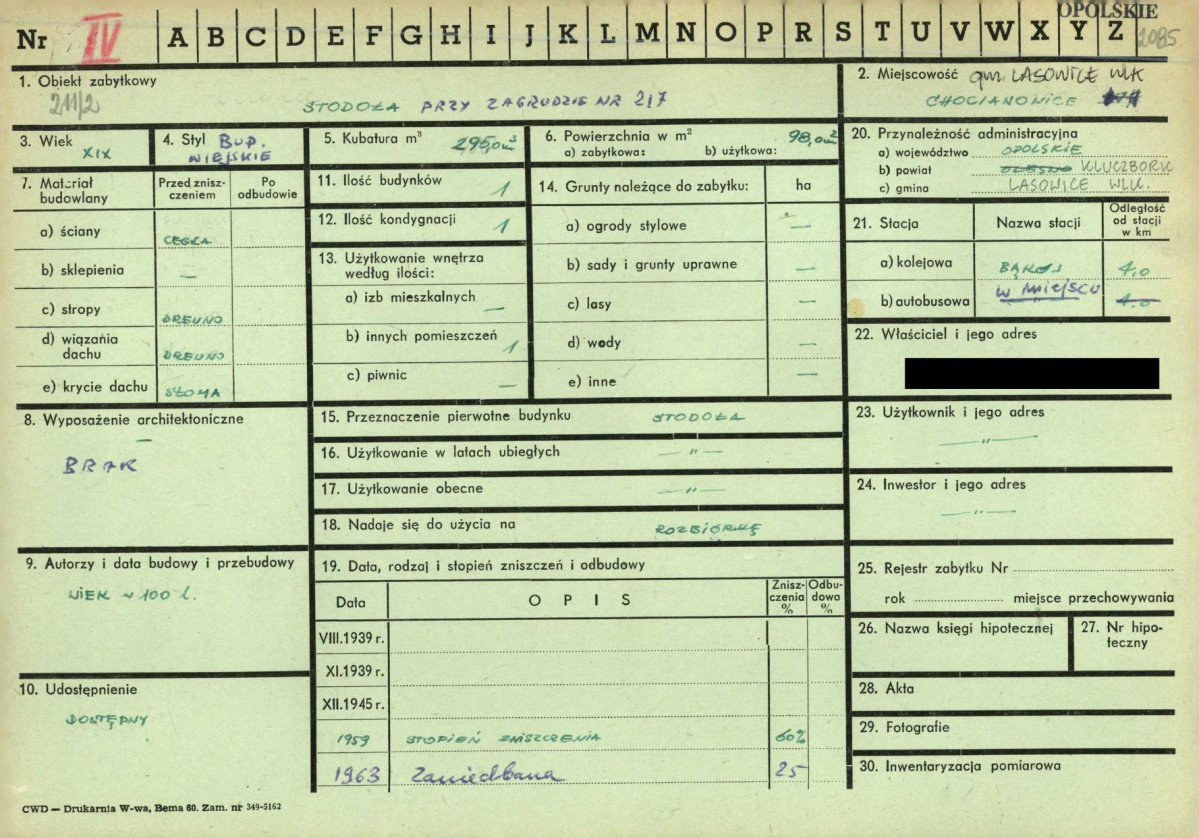 OPOLSKIE
Nr IV A B C D E F G H I J K L M N O P R S T U V W X Y Z 2085
1. Obiekt zabytkowy
211/2
STODOŁA PRZY ZAGRODZIE NR 217
2. Miejscowość gm. LASOWICE WLK
CHOCIANOWICE
3. Wiek
XIX
4. Styl BUD.
WIEJSKIE
5. Kubatura m³ 295,0 m³
6. Powierzchnia w m²
a) zabytkowa: b) użytkowa: 98,0 m²
20. Przynależność administracyjna
a) województwo OPOLSKIE
b) powiat OLESNO KLUCZBORK
c) gmina LASOWICE WLK.
7. Materiał budowlany
Przed zniszczeniem
Po odbudowie
a) ściany CEGŁA
b) sklepienia —
c) stropy DREWNO
d) wiązania dachu DREWNO
e) krycie dachu SŁOMA
11. Ilość budynków 1
12. Ilość kondygnacji 1
13. Użytkowanie wnętrza
według ilości:
a) izb mieszkalnych —
b) innych pomieszczeń 1
c) piwnic —
14. Grunty należące do zabytku: ha
a) ogrody stylowe —
b) sady i grunty uprawne —
c) lasy —
d) wody —
e) inne —
21. Stacja
Nazwa stacji
Odległość od stacji w km
a) kolejowa BĄKÓW 4,0
b) autobusowa w miejscu 4.0
22. Właściciel i jego adres
8. Wyposażenie architektoniczne
—
BRAK
15. Przeznaczenie pierwotne budynku STODOŁA
16. Użytkowanie w latach ubiegłych — " —
17. Użytkowanie obecne — " —
18. Nadaje się do użycia na ROZBIÓRKĘ
23. Użytkownik i jego adres
— " —
24. Inwestor i jego adres
— " —
9. Autorzy i data budowy i przebudowy
WIEK ~ 100 l.
19. Data, rodzaj i stopień zniszczeń i odbudowy
Data OPIS Zniszczenia % Odbudowa %
VIII.1939 r.
XI.1939 r.
XII.1945 r.
1959 STOPIEŃ ZNISZCZENIA 60%
1963 Zaniedbana 25
25. Rejestr zabytku Nr
rok miejsce przechowywania
26. Nazwa księgi hipotecznej
27. Nr hipoteczny
10. Udostępnienie
DOSTĘPNY
28. Akta
29. Fotografie
30. Inwentaryzacja pomiarowa
CWD — Drukarnia W-wa, Bema 60. Zam. nr 349-5162